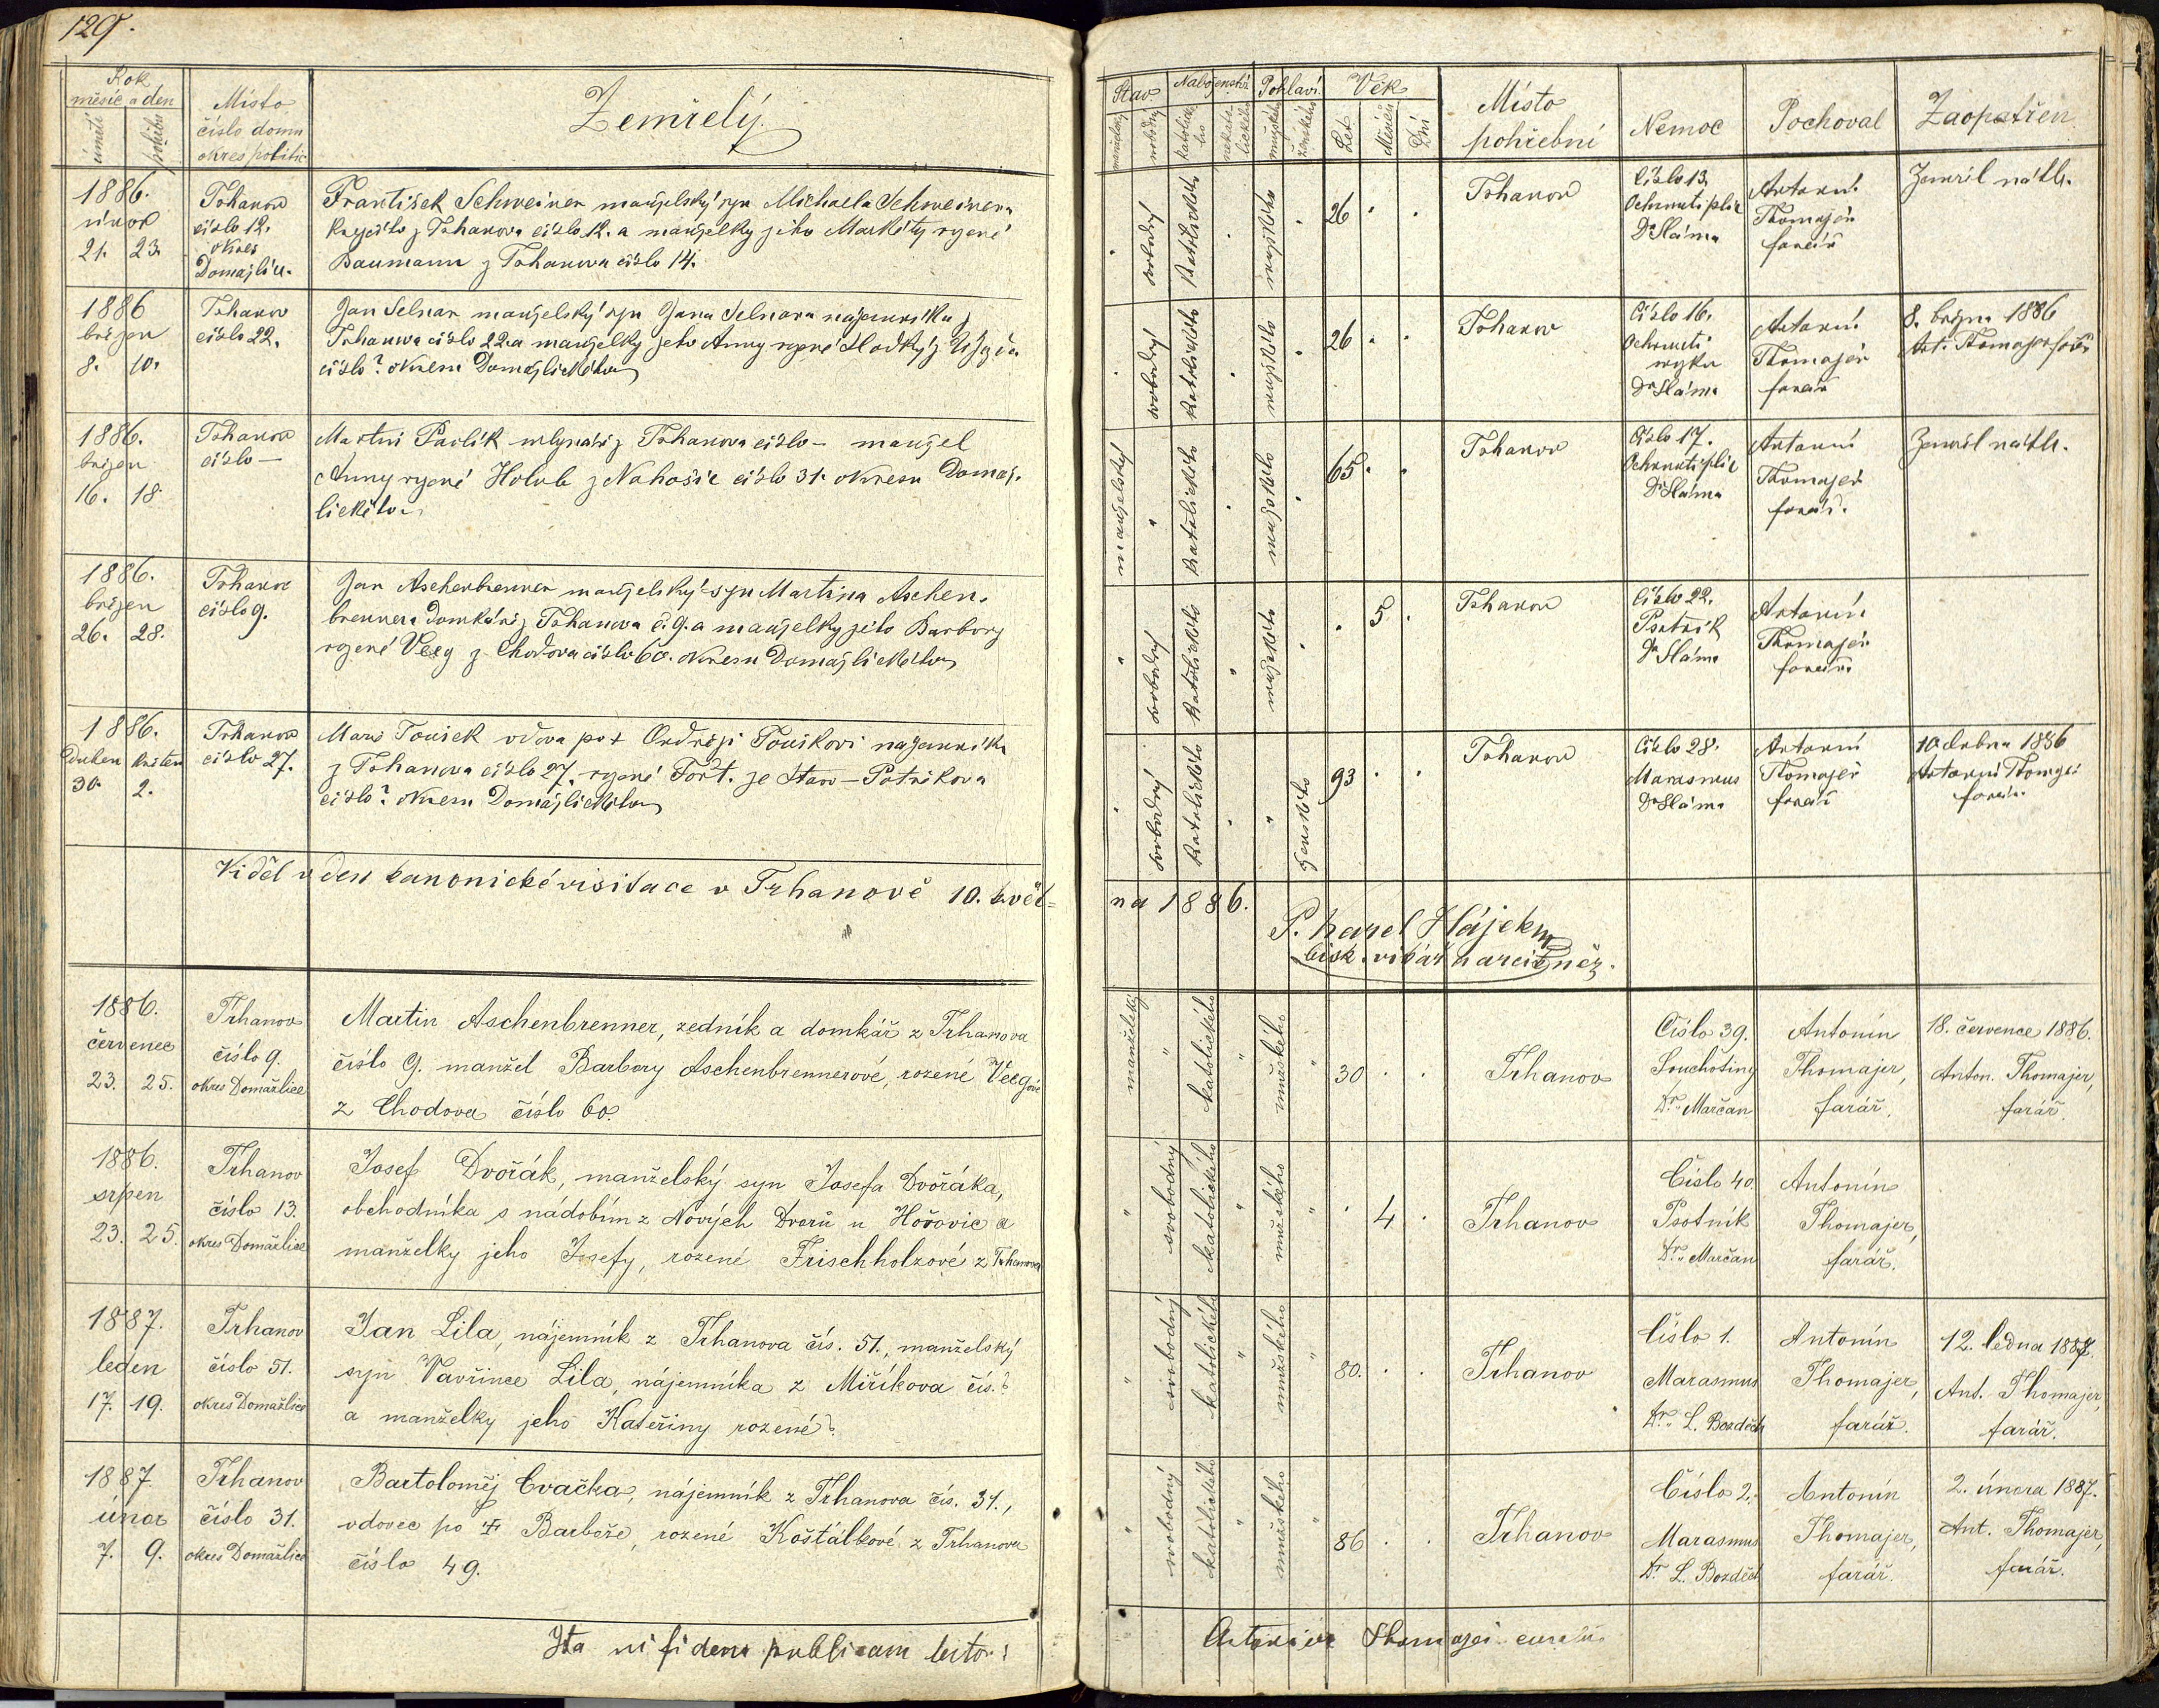 129.
Rok
měsíc a den
úmrtí
pohřbu
Místo
číslo domu
okres politic
Zemřelý.
1886.
únor
21. 23.
Trhanov
číslo 12.
okres
Domažlice.
František Schweiner manželský syn Michaela Schweinera
krejčího z Trhanova číslo 12. a manželky jeho Markéty rozené
Baumann z Trhanova číslo 14.
1886
březen
8. 10.
Trhanov
číslo 22.
Jan Selnar manželský syn Jana Selnara nájemníka z
Trhanova číslo 22 a manželky jeho Anny rozené Hladký z Újezda
číslo? okresu Domažlického
1886.
březen
16. 18.
Trhanov
číslo —
Martin Pavlík mlynář z Trhanova číslo — manžel
Anny rozené Holub z Nahošic číslo 31. okresu Domaž-
lického
1886.
březen
26. 28.
Trhanov
číslo 9.
Jan Aschenbrenner manželský syn Martina Aschen-
brennera domkáře z Trhanova č. 9. a manželky jeho Barbory
rozené Veeg z Chodova číslo 60. okresu Domažlického
1886.
Duben květen
30. 2.
Trhanov
číslo 27.
Marie Toušek vdova po + Ondřeji Touškovi nájemníku
z Trhanova číslo 27. rozené Fořt. ze Stare-Potřikova
číslo? okresu Domažlického
Viděl v den kanonické visitace v Trhanově 10. květ=
1886.
červenec
23. 25.
Trhanov
číslo 9.
okres Domažlice
Martin Aschenbrenner, zedník a domkář z Trhanova
číslo 9. manžel Barbory Aschenbrennerové, rozené Veegové
z Chodova číslo 60.
1886.
srpen
23. 25.
Trhanov
číslo 13.
okres Domažlice
Josef Dvořák, manželský syn Josefa Dvořáka,
obchodníka s nádobím z Nových Dvorů u Hořovic a
manželky jeho Josefy, rozené Frischholzové z Trhanova
1887.
leden
17. 19.
Trhanov
číslo 51.
okres Domažlice
Jan Lila, nájemník z Trhanova čís. 51., manželský
syn Vavřince Lila, nájemníka z Miříkova čís.?
a manželky jeho Kateřiny rozené?
1887.
únor
7. 9.
Trhanov
číslo 31.
okres Domažlice
Bartoloměj Cvačka, nájemník z Trhanova čís. 31.,
vdovec po ‡ Barboře, rozené Košťálkové z Trhanova
číslo 49.
Ita in fidem publicam testor:
Stav
manželský
svobodný
Náboženství
katolického
nekatolického
Pohlaví
mužského
ženského
Věk
Let
Měsíců
Dní
Místo
pohřební
Nemoc
Pochoval
Zaopatřen
svobodný
katolického
mužského
26
Trhanov
Číslo 13.
Ochrnutí plic
Dr Sláma
Antonín
Thomajer
farář
Zemřel náhle.
svobodný
katolického
mužského
26
Trhanov
Číslo 16.
Ochrnutí
Dr Sláma
Antonín
Thomajer
farář
8. března 1886
Ant. Thomajer farář
manželský
"
katolického
mužského
65
Trhanov
Číslo 17.
Ochrnutí plic
Dr Sláma
Antonín
Thomajer
farář.
Zemřel náhle.
"
svobodný
katolického
"
mužského
5
Trhanov
Číslo 22.
Psotník
Dr Sláma
Antonín
Thomajer
farář.
"
svobodný
katolického
"
"
ženského
93
Trhanov
Číslo 28.
Marasmus
Dr Sláma
Antonín
Thomajer
farář
10 dubna 1886
Antonín Thomajer
farář.
na 1886.
P. Karel Hájek
bisk. vikář a arcikněz.
manželský
"
katolického
"
mužského
"
30
Trhanov
Číslo 39.
Souchotiny
Dr. Marčan
Antonín
Thomajer,
farář.
18. července 1886.
Anton. Thomajer,
farář.
"
svobodný
katolického
"
mužského
"
4
Trhanov
Číslo 40.
Psotník
Dr. Marčan
Antonín
Thomajer,
farář.
"
svobodný
katolického
"
mužského
"
80.
Trhanov
Číslo 1.
Marasmus
Dr. L. Bozděch
Antonín
Thomajer,
farář.
12. ledna 1887.
Ant. Thomajer,
farář.
"
svobodný
katolického
"
mužského
"
86
Trhanov
Číslo 2.
Marasmus
Dr L. Bozděch
Antonín
Thomajer,
farář.
2. února 1887.
Ant. Thomajer,
farář.
Antonius Thomajer curatus